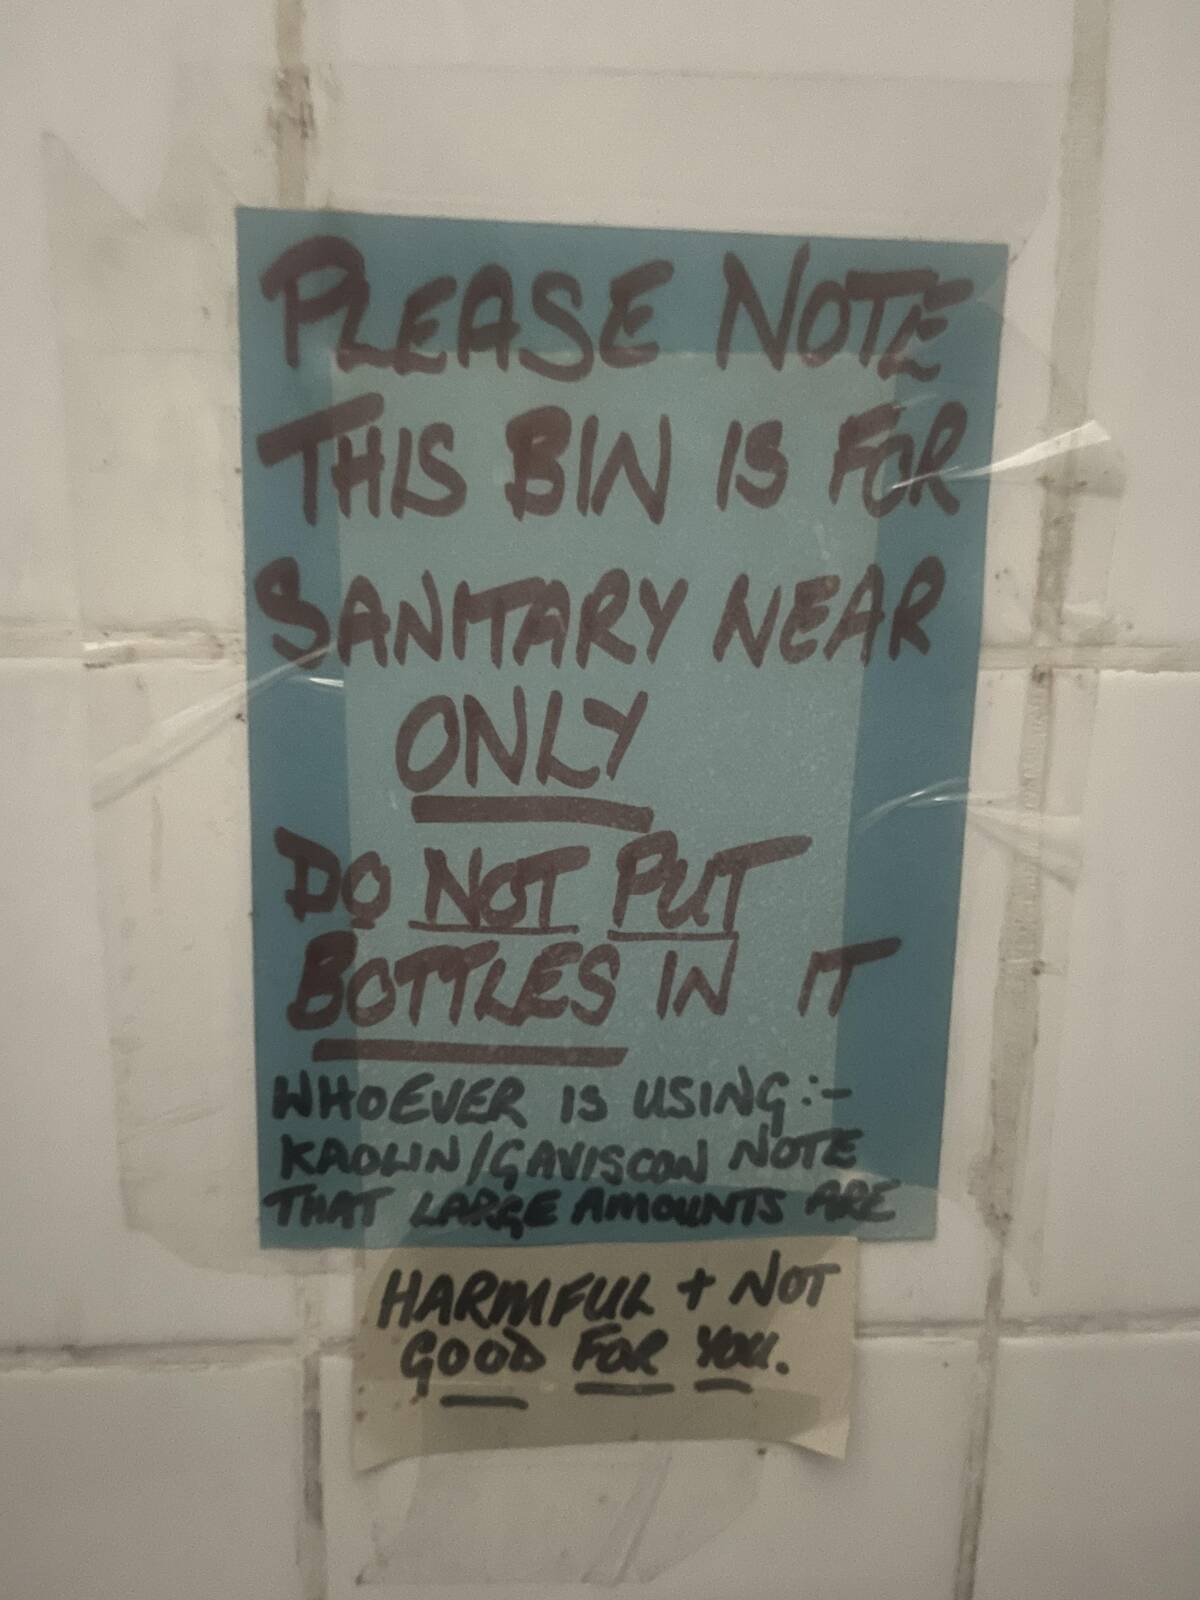 PLEASE NOTE
THIS BIN IS FOR
SANITARY NEAR
ONLY
DO NOT PUT
BOTTLES IN IT
WHOEVER IS USING:-
KAOLIN/GAVISCON NOTE
THAT LARGE AMOUNTS ARE
HARMFUL + NOT
GOOD FOR YOU.